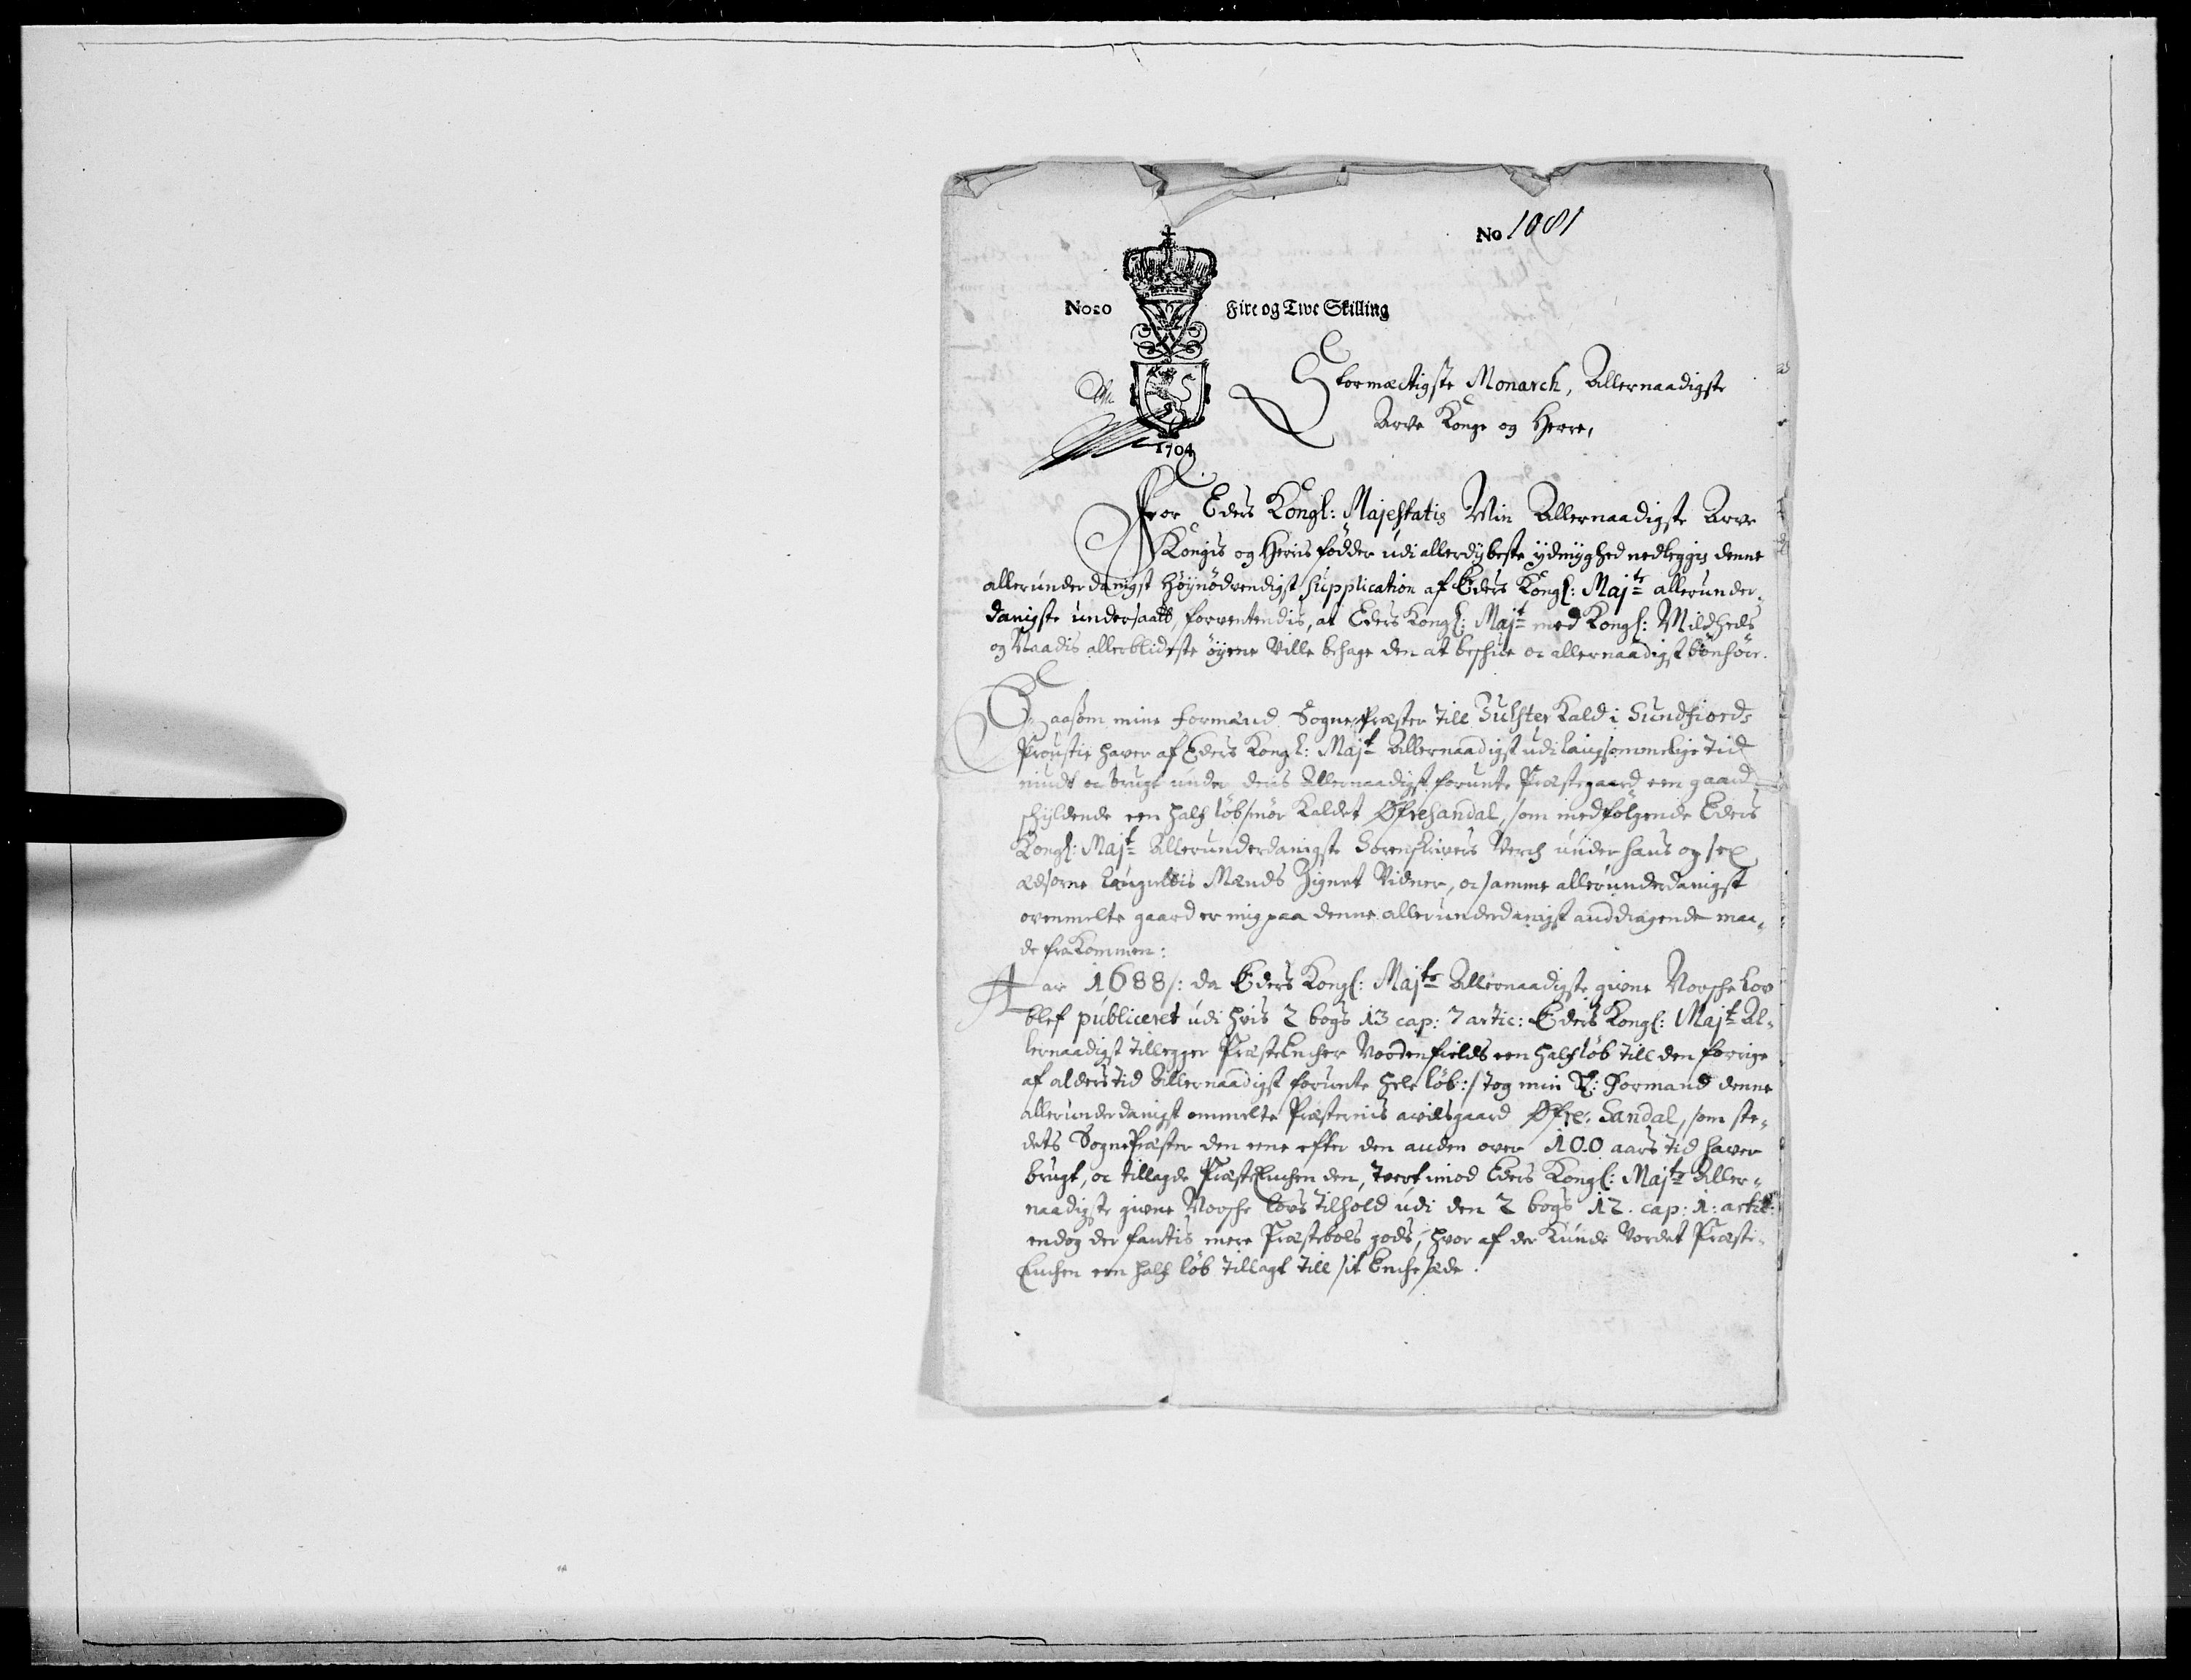 No 1081
No 20 Fire og Tive Skilling
1704
Stormæctigste Monarch, Allernaadigste
Arve Konge og Herre,
For Eders Kongl: Majestatis Min Allernaadigste Arve
Kongis og Heris fødder udi allerdybeste ydmyghed nedleggis denne
allerunderdanigst høynødvendigst Supplication af Eders Kongl: Majts allerunder„
danigste undersaatt, forventendis, at Eders Kongl: Majt med Kongl: Mildheds
og Naadis allerblideste øyene Ville behage den at beskue oc allernaadigst bønhøre.
Saasom mine formænd Sogne Præster till Julster Kald i Sundfiords
Proustie haver af Eders Kongl: Majt Allernaadigst udi langsommelige tid
niudt oc brugt under deris Allernaadigst forunte Præstegaard een gaard
schyldende een half løb smør Kaldet Øfresandal, som medfølgende Eders
Kongl: Majts Allerunderdanigste Sorenskrivers Verch under hans og sex
ædsorne Laugrettis Mænds Zignet Vidner, oc samme allerunderdanigst
ovenmelte gaard er mig paa denne allerunderdanigst anddragende maa„
de fra Kommen:
Aar 1688/: da Eders Kongl: Majts Allernaadigste givne Norsche Lov
blef publiceret udi hvis 2 bogs 13 cap: 7 artic: Eders Kongl: Majt Al„
lernaadigst tillegger Præste Encher Nordenfields een half løb till den forrige
af alders tid Allernaadigst forunte hele løb:/ tog min S: Formand denne
allerunderdanigst ommelte Præsternis avelsgaard Øfre: Sandal, som ste„
dets Sogne Præster den eene efter den anden over 100 aars tid haver
brugt, oc tillagde Præst Enchen den, tvert imod Eders Kongl: Majts Aller„
naadigste givne Norsche Lovs tilhold udi den 2 bogs 12. cap: 1: artic:
endog der fantis mere Præstebols gods, hvor af der Kunde Vordet Præste„
Enchen een half løb tillagt till sit Enchesæde.